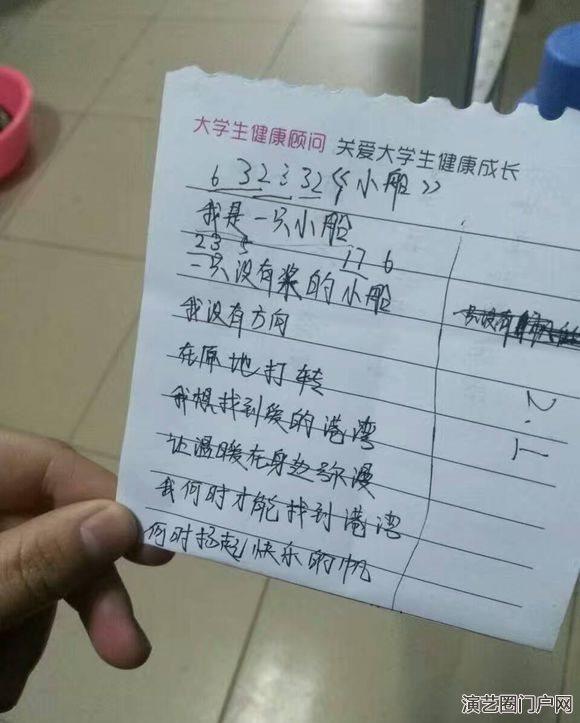 大学生健康顾问 关爱大学生健康成长
6 3 2 3 3 2 《小船》
我是一只小船
2 3 5 1 7 6
一只没有桨的小船
我没有方向
在原地打转
我想找到爱的港湾
让温暖在身边弥漫
我何时才能找到港湾
何时扬起快乐的帆
演艺圈门户网
www.yanyiquan.cn